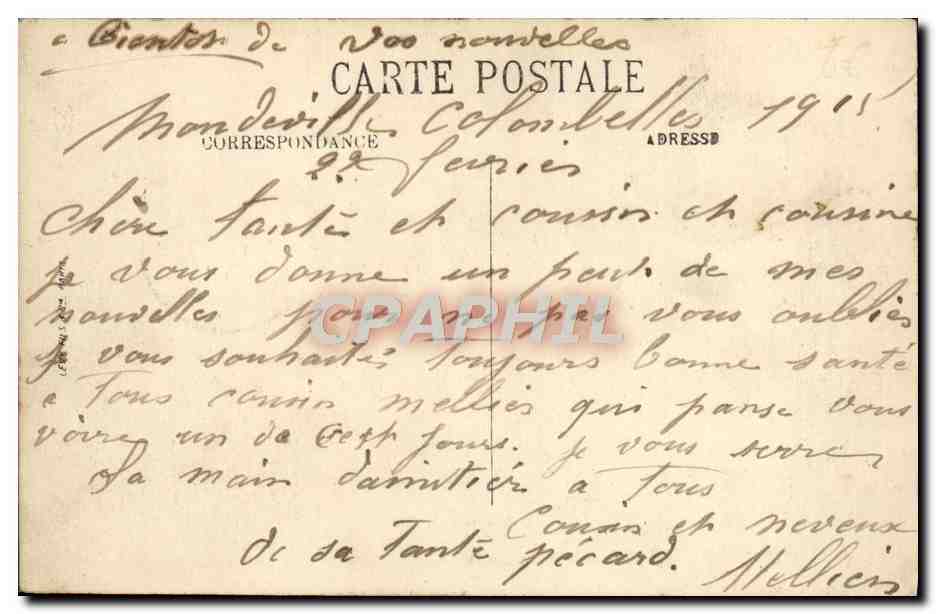 a Bientot de vos nouvelles
CARTE POSTALE
Mondeville Colombelles 1915
CORRESPONDANCE
ADRESSE
22 fevrier
Chère tante et cousin et cousine
je vous donne un peut de mes
nouvelles pour ne pas vous oublies
je vous souhaites toujours bonne santé
a tous cousin mellier qui panse vous
voire un de cest jours. je vous serre
la main damitier a tous
Cousin et neveux
de sa tante pécard.
Mellier
CPAPHIL